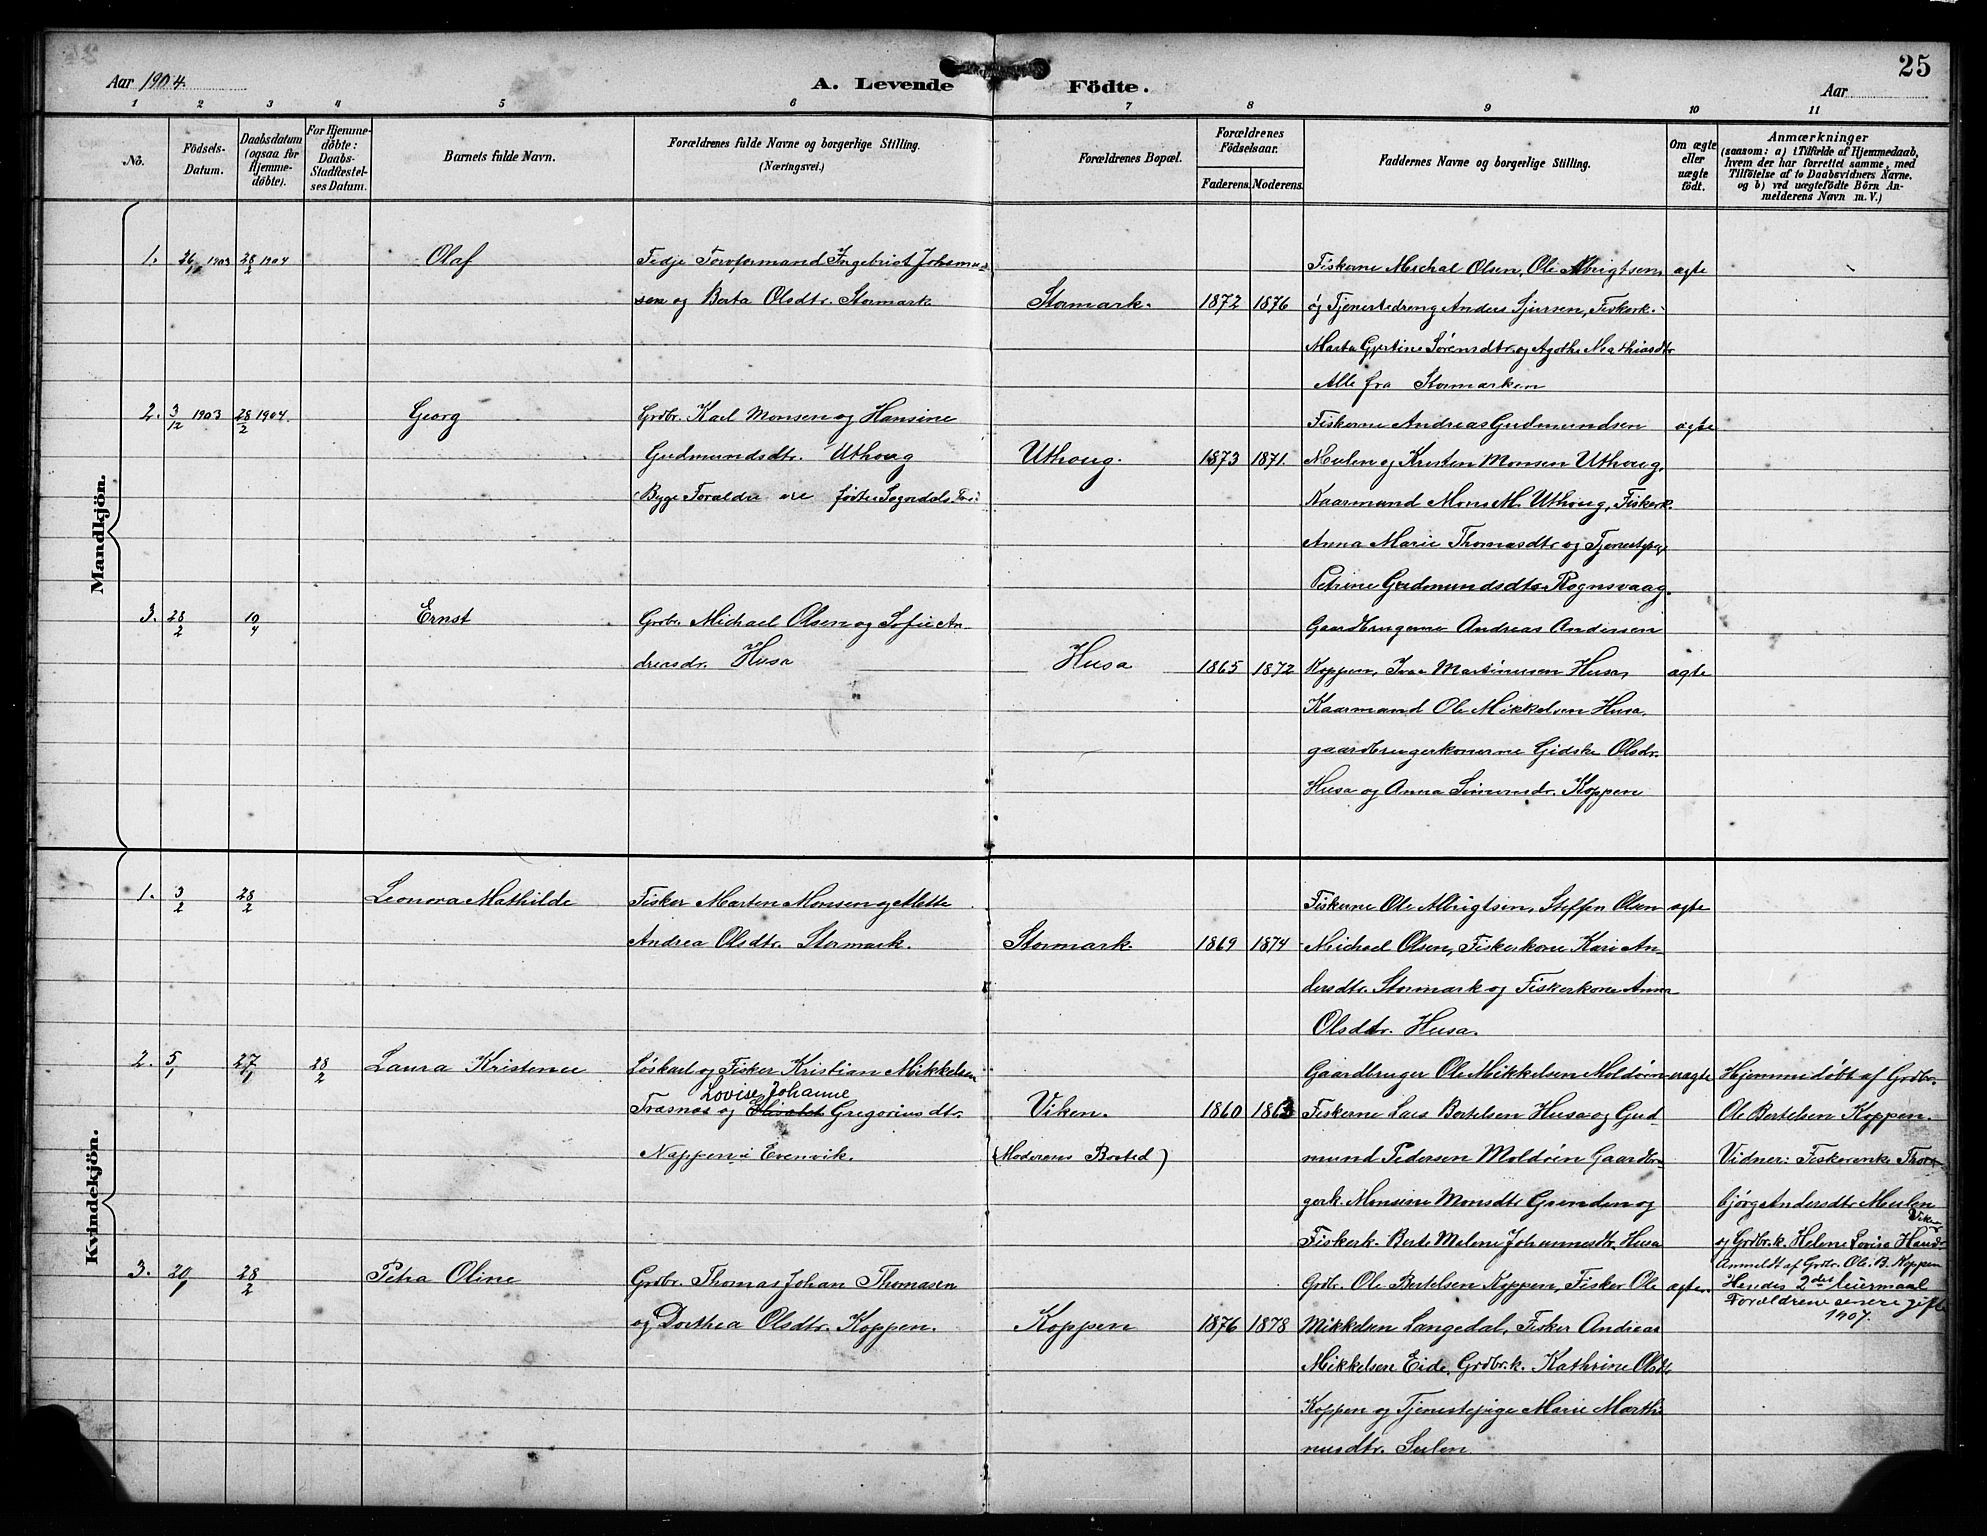 25
Aar 1904.
A. Levende Födte.
Aar
1 2 3 4 5 6 7 8 9 10 11
No.
Födsels-
Datum.
Daabsdatum
(ogsaa for
Hjemme-
døbte).
For Hjemme-
døbte:
Daabs-
Stadfæstel-
ses Datum.
Barnets fulde Navn.
Forældrenes fulde Navne og borgerlige Stilling.
(Næringsvei.)
Forældrenes Bopæl.
Forældrenes
Födselsaar.
Faderens. Moderens.
Faddernes Navne og borgerlige Stilling.
Om ægte
eller
uægte
født.
Anmærkninger
(saasom: a) i Tilfælde af Hjemmedaab,
hvem der har forrettet samme, med
Tilføielse af to Daabsvidners Navne.
og b) ved uægtefødte Börn An-
melderens Navn m. V.)
Mandkjön.
1. 26/10 1903 28/2 1904 Olaf
Fedje Torvformand Ingebrigt Johannes-
sen og Berta Olsdtr. Stormark
Stormark. 1872 1876
Fiskerne Michal Olsen, Ole Albrigtsen ægte
og Tjenestedreng Anders Sjursen, Fiskerk.
Marta Gjertine Sørensdtr. og Agathe Mathiasdtr
Alle fra Stormarken
2. 3/12 1903 28/2 1904. Georg
Grdbr. Karl Monsen og Hansine
Gudmundsdtr. Uthoug
Uthoug. 1873 1871.
Fiskerne Andreas Gudmundsen ægte
Mulen og Kristen Monsen Uthoug,
Kaarmand Mons M. Uthoug, Fiskerk.
Anna Marie Thomasdtr og Tjenestepige
Petrine Gudmundsdtr Rognsvaag.
3. 28/2 10/4 Ernst
Grdbr. Michael Olsen og Sofie An-
dreasdr. Husa
Husa 1865 1872 ægte
Gaardbrugerne Andreas Andersen
Koppen, Ivar Martinusen Husa,
Kaarmand Ole Mikkelsen Husa.
gaardbrugerkonerne Gidske Olsdr.
Husa og Anna Simonsdr. Koppen
Kvindekjön.
1. 3/2 28/2 Leonora Mathilde
Fisker Marten Monsen og Mette
Andrea Olsdtr. Stormark.
Stormark. 1869 1874
Fiskerne Ole Albrigtsen, Steffen Olsen ægte
Michael Olsen, Fiskerkone Kari An-
dersdtr. Stormark og Fiskerkone Anna
Olsdtr. Husa.
2. 5/1 27/1 28/2 Laura Kristence
Løskarl og Fisker Kristian Mikkelsen
Lovise Johanne
Træsnæs og Elisabet Gregoriusdtr.
Nappen i Evenvik.
Viken. 1860 1863
(Moderens Bosted)
Gaardbruger Ole Mikkelsen Moldöen uægte
Fiskerne Lars Bertelsen Husa og Gud
mund Pedersen Moldöen Gaardbru-
gerk. Monsine Monsdtr Grinden og
Fiskerk. Berte Malene Johannesdtr. Husa
Hjemmedøbt af Grdbr.
Ole Bertelsen Koppen.
Vidner: Fiskerenke Thor-
bjørg Andersdtr Mulen
Viken
og Grdbr.k. Helene Lovisa Hansdr
Anmeldt af Grdbr. Ole B. Koppen
Hendes 2det leiermaal
Forældrene senere gift
1907.
3. 20/1 28/2 Petra Oline
Grdbr. Thomas Johan Thomasen
og Dorthea Olsdtr. Koppen.
Koppen 1876 1878
Grdbr. Ole Bertelsen Koppen, Fisker Ole ægte.
Mikkelsen Langedal, Fisker Andreas
Mikkelsen Eide, Grdbr.k. Kathrine Olsdtr
Koppen og Tjenestepige Marie Marthi
nusdtr. Sulen